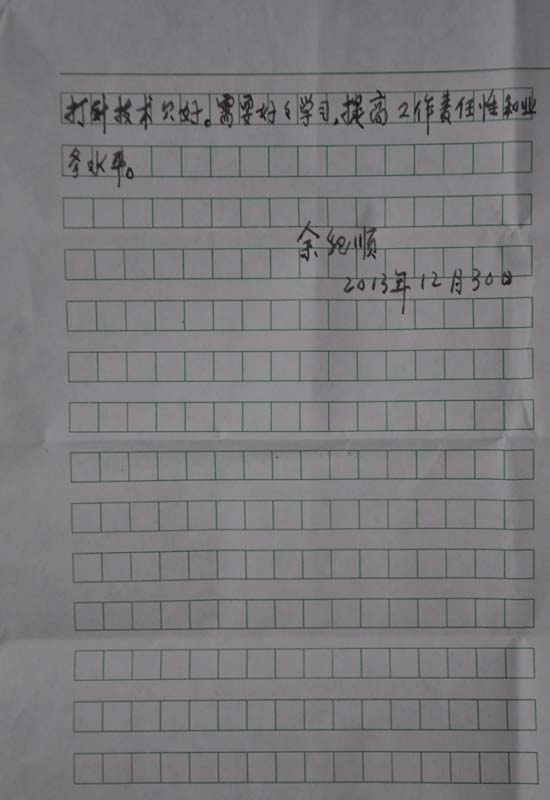 打针技术欠好。需要好々学习,提高工作责任性和业
务水平。
余纪顺
2013年12月30日